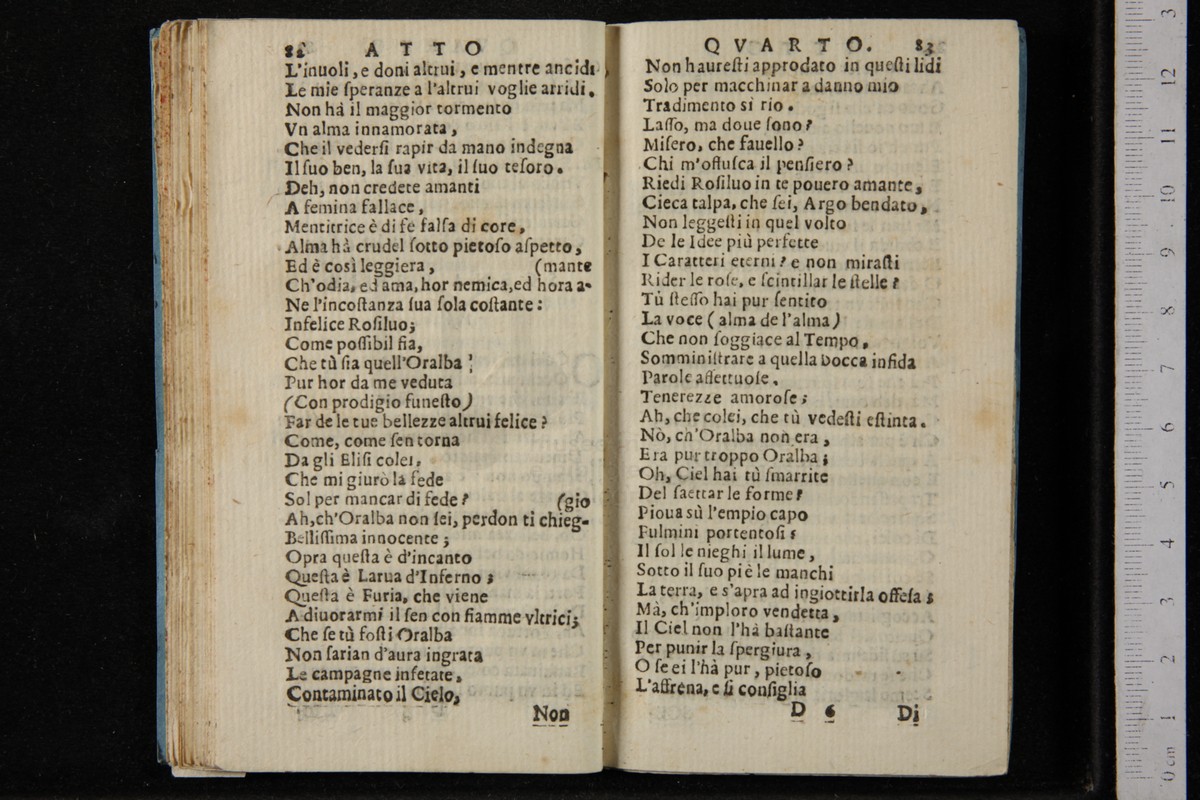 82 ATTO
L'inuoli, e doni altrui, e mentre ancidi
Le mie ſperanze a l'altrui voglie arridi.
Non hà il maggior tormento
Vn alma innamorata,
Che il vederſi rapir da mano indegna
Il ſuo ben, la ſua vita, il ſuo teſoro.
Deh, non credete amanti
A femina fallace,
Mentitrice è di fe falſa di core,
Alma hà crudel ſotto pietoſo aſpetto,
Ed è così leggiera, (mante
Ch'odia, ed ama, hor nemica, ed hora a-
Ne l'incoſtanza ſua ſola coſtante:
Infelice Roſiluo;
Come poſſibil fia,
Che tù ſia quell'Oralba;
Pur hor da me veduta
(Con prodigio funeſto)
Far de le tue bellezze altrui felice?
Come, come ſen torna
Da gli Eliſi colei,
Che mi giurò la fede
Sol per mancar di fede? (gio
Ah, ch'Oralba non ſei, perdon ti chieg-
Belliſſima innocente;
Opra queſta è d'incanto
Queſta è Larua d'Inferno;
Queſta è Furia, che viene
A diuorarmi il ſen con fiamme vltrici;
Che ſe tù foſti Oralba
Non ſarian d'aura ingrata
Le campagne infetate,
Contaminato il Cielo,
Non
QVARTO. 83
Non haureſti approdato in queſti lidi
Solo per macchinar a danno mio
Tradimento sì rio.
Laſſo, ma doue ſono?
Miſero, che fauello?
Chi m'offuſca il penſiero?
Riedi Roſiluo in te pouero amante,
Cieca talpa, che ſei, Argo bendato,
Non leggeſti in quel volto
De le Idee più perfette
I Caratteri eterni? e non miraſti
Rider le roſe, e ſcintillar le ſtelle?
Tù ſteſſo hai pur ſentito
La voce (alma de l'alma)
Che non ſoggiace al Tempo,
Somminiſtrare a quella bocca infida
Parole affettuoſe,
Tenerezze amoroſe;
Ah, che colei, che tù vedeſti eſtinta.
Nò, ch'Oralba non era,
Era pur troppo Oralba;
Oh, Ciel hai tù ſmarrite
Del ſaettar le forme?
Pioua sù l'empio capo
Fulmini portentoſi;
Il ſol le nieghi il lume,
Sotto il ſuo piè le manchi
La terra, e s'apra ad ingiottirla offeſa;
Mà, ch'imploro vendetta,
Il Ciel non l'hà baſtante
Per punir la ſpergiura,
O ſe ei l'hà pur, pietoſo
L'affrena, e ſi conſiglia
D 6 Di
0 cm 1 2 3 4 5 6 7 8 9 10 11 12 13